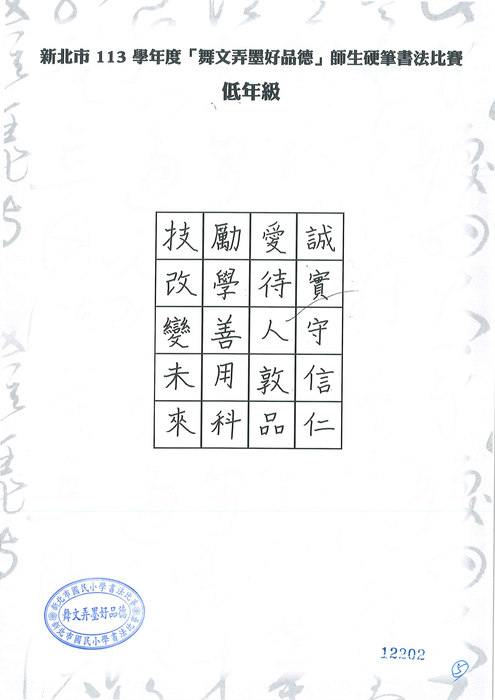 新北市 113 學年度「舞文弄墨好品德」師生硬筆書法比賽
低年級
誠實守信仁
愛待人敦品
勵學善用科
技改變未來
新北市國民小學書法比賽
舞文弄墨好品德
新北市國民小學書法比賽
12202
5